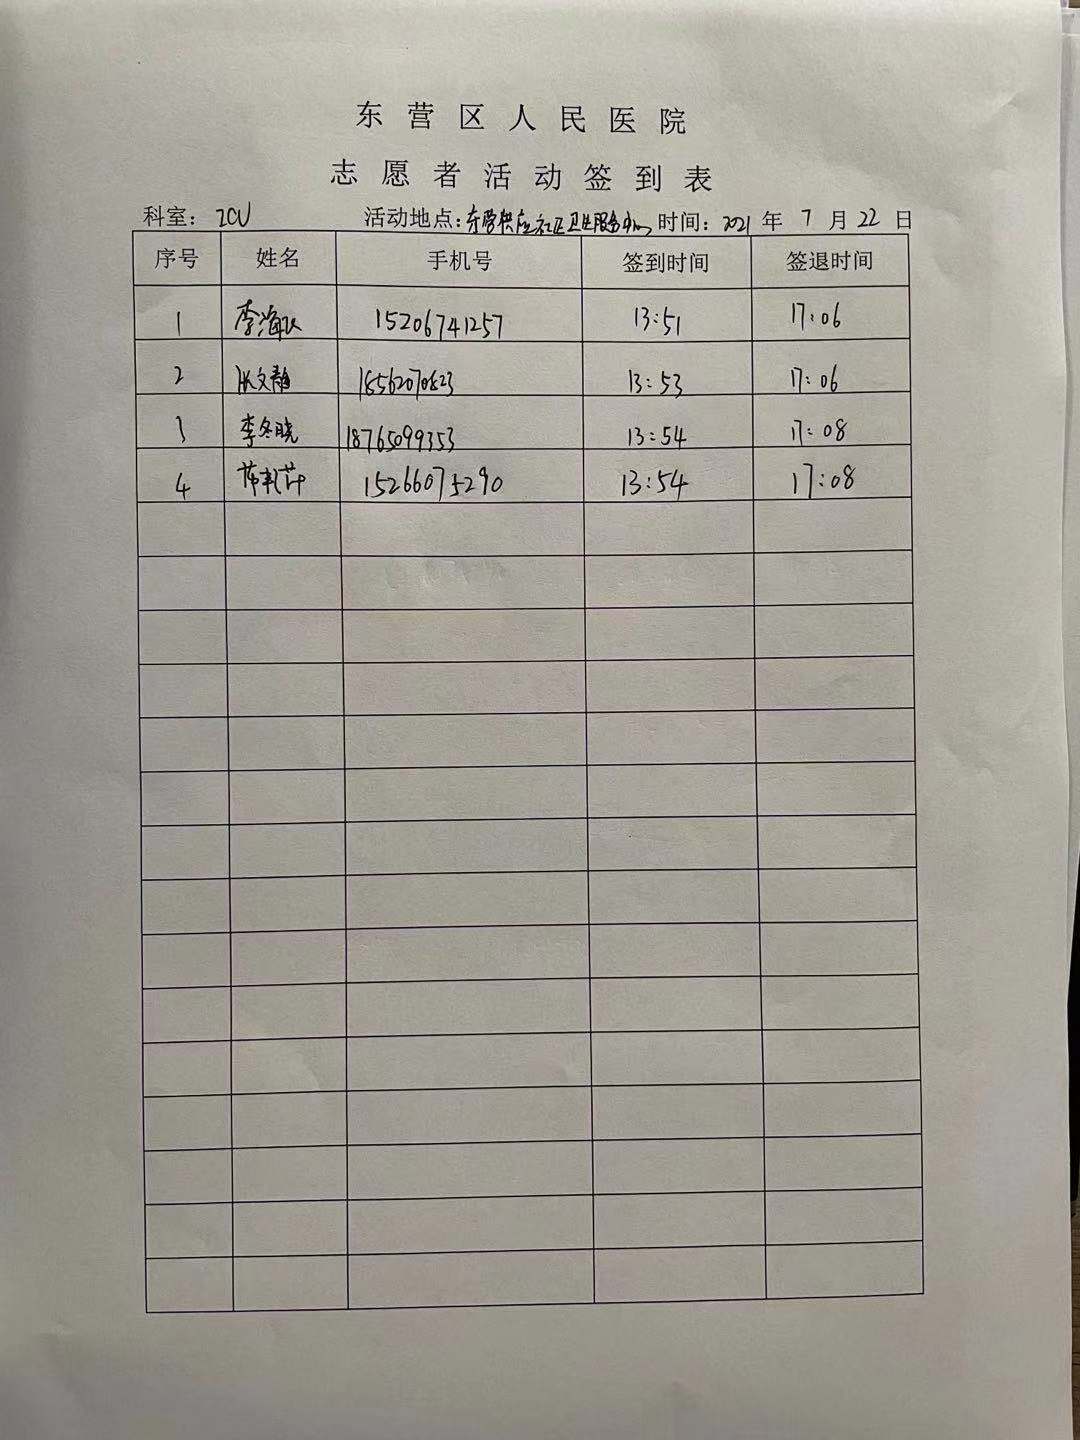 东营区人民医院
志愿者活动签到表
科室：ICU 活动地点：东营供应社区卫生服务中心 时间：2021 年 7 月 22 日
序号 姓名 手机号 签到时间 签退时间
1 李海 15206741257 13:51 17:06
2 张文静 18562070823 13:53 17:06
3 李冬晓 18765099353 13:54 17:08
4 15266075290 13:54 17:08